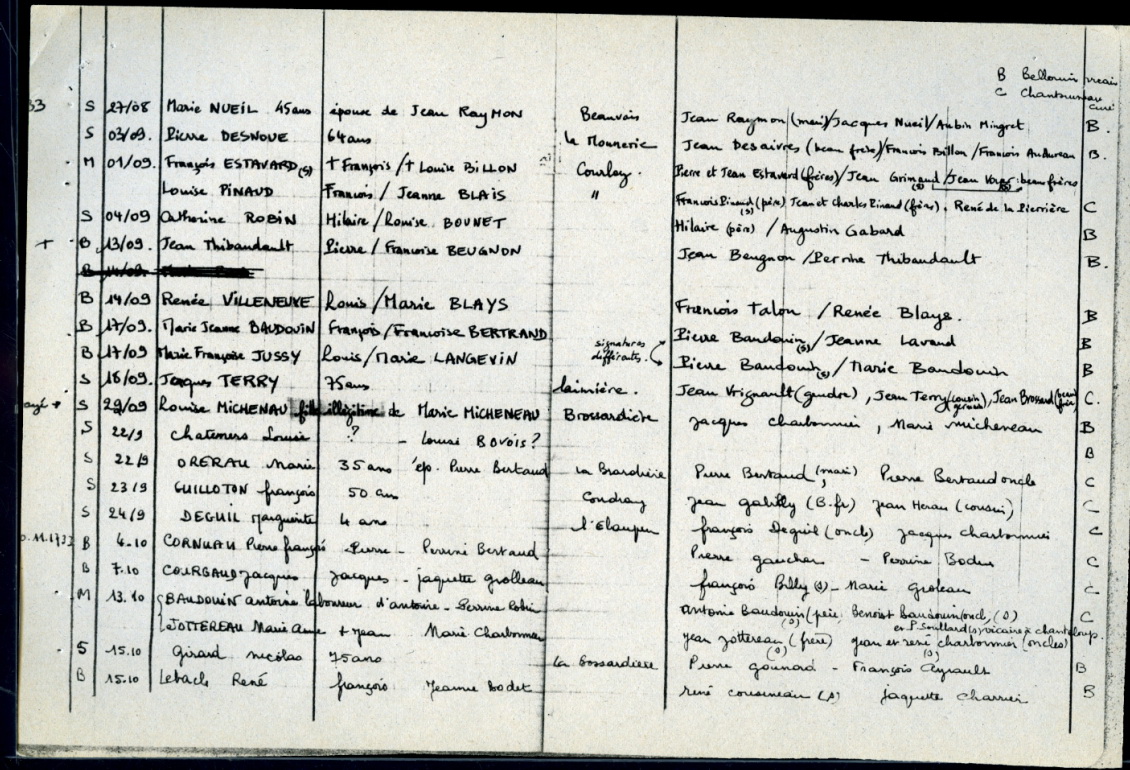 B Bellouin vicaire
C Chantoureau curé
33 S 27/08 Marie NUEIL 45ans épouse de Jean RAYMON Beauvais Jean Raymon (mari)/Jacques Nueil/Aubin Mingret B.
S 03/09. Pierre DESNOUE 64ans la Monnerie Jean Desaivres (beau frère)/Francois Billon/Francois Audureau B.
M 01/09. François ESTAVARD(s) † François/† Louise BILLON Courlay. Pierre et Jean Estavard (frères)/Jean Grimaud (s)/Jean Voyer (s): beaux frères
Louise PINAUD Francois / Jeanne BLAIS " Francois Pinaud (s) (père) Jean et Charles Pinaud (frères). René de la Pierrière C
S 04/09 Catherine ROBIN Hilaire/Louise BOUNET Hilaire (père) / Augustin Gabard B
+ B 13/09. Jean Thibaudault Pierre / Francoise BEUGNON Jean Beugnon /Perrine Thibaudault B.
B 14/09.
B 14/09 Renée VILLENEUVE Louis/Marie BLAYS Francois Talon /Renée Blaye. B
B 17/09. Marie Jeanne BAUDOUIN François/Francoise BERTRAND Pierre Baudouin(s)/Jeanne Lavaud B
signatures différentes.
B 17/09 Marie Françoise JUSSY Louis/Marie LANGEVIN Pierre Baudouin(s)/Marie Baudouin B
S 18/09. Jacques TERRY 75ans laimière. Jean Vrignault (gendre), Jean Terry (cousin germain), Jean Brossard (beau frère) C.
S 29/09 Louise MICHENAU fille illégitime de Marie MICHENEAU Brossardière Jacques charbonnier, Marie micheneau B
S 22/9 Chateners Louise ? - Louise Bovois? B
S 22/9 DRERAU Marie 35 ans ép. Pierre Bertaud La Brardière Pierre Bertaud (mari), Pierre Bertaud oncle C
S 23/9 GUILLOTON françois 50 ans Condray Jean gabilly (B.fr) Jean Herau (cousin) C
S 24/9 DEGUIL Marguerite 4 ans françois Deguil (oncle) Jacques charbonnier C
B 4.10 CORNUAU Pierre françois Pierre - Perrine Bertaud Pierre gaucher - Perrine Bodin C
B 7.10 COURGAUD Jacques Jacques - jaquette grolleau françois Billy (s) - Marie Groleau C
M 13.10 BAUDOUIN antoine laboureur d'antoine - Perrine Robin antoine Baudouin (s) (père, Benoist Baudouin (oncl, (s) C
et P. Soullard (s) vicaire à chanteloup.
JOTTEREAU Marie Anne + Jean Marie Charbonnier jean jottereau (s) (frère) jean et rené charbonnier (s) (oncles)
S 15.10 Girard nicolas 75ans La Bossardière Pierre gounard - François Ayrault B
B 15.10 Lebach René françois Jeanne Bodet rené cousineau (s) jaquette charrier B